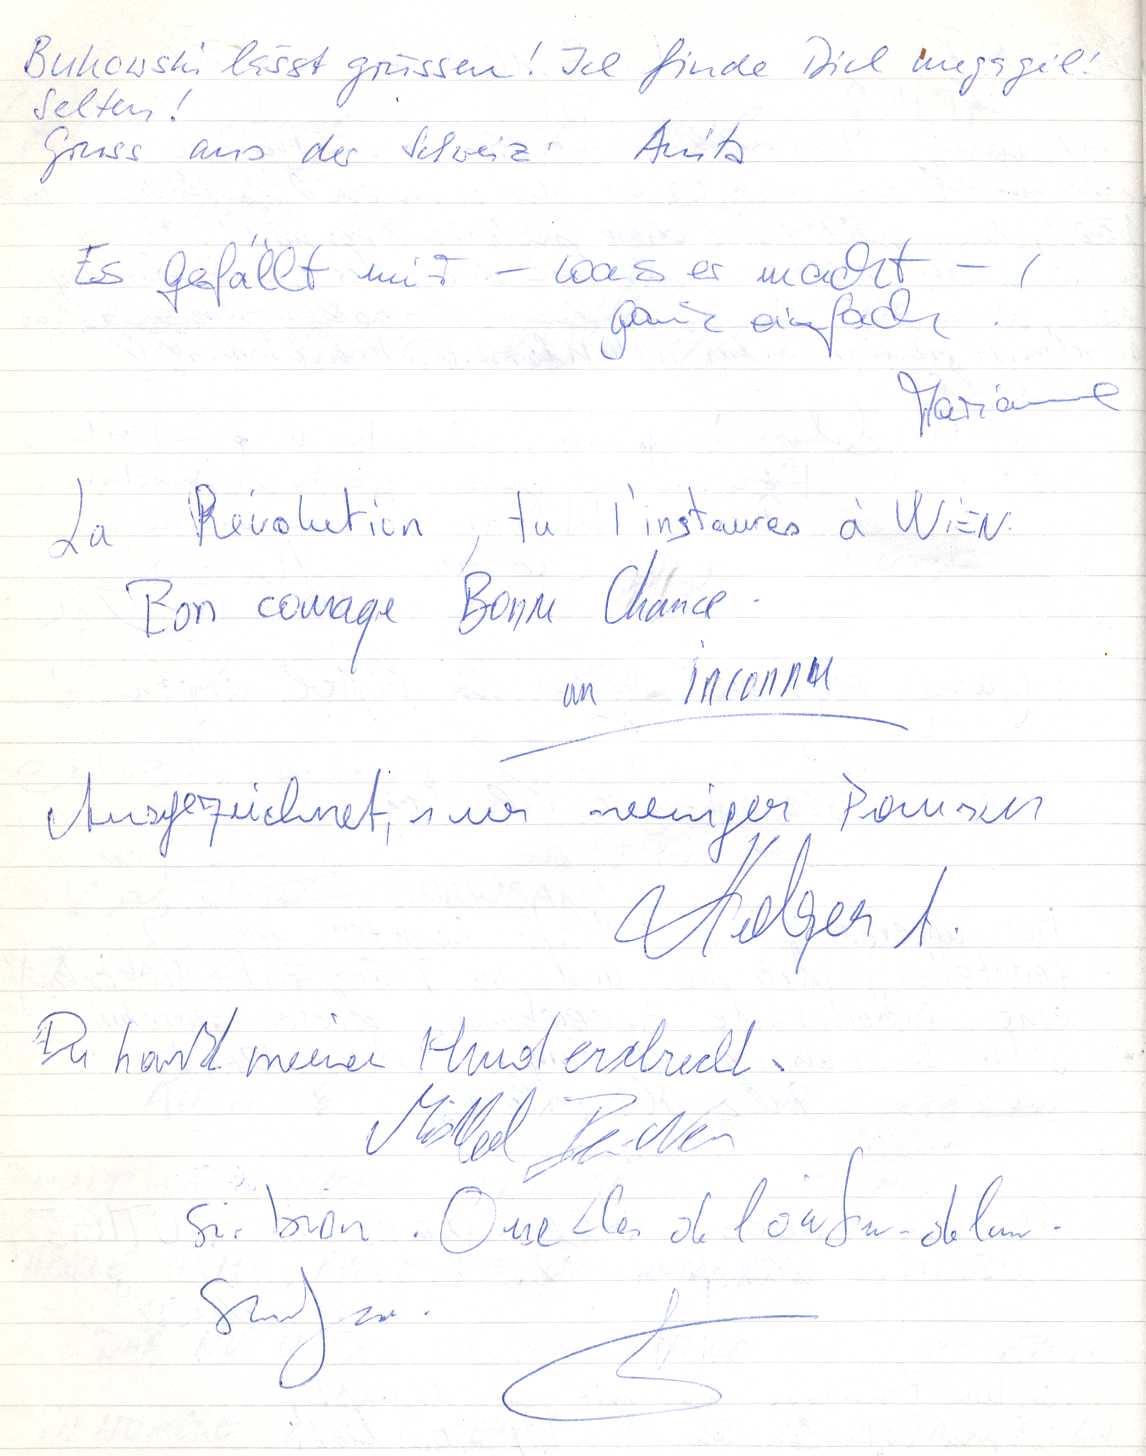 Bukowski lässt grüssen! Ich finde Dich megageil!
Selten!
Gruss aus der Schweiz! Anita
Es gefällt mir – was er macht – !
ganz einfach.
Marianne
La Révolution, tu l'instaures à WiEN.
Bon courage Bonne Chance.
un inconnu
Ausgezeichnet, nur weniger Pausen
Holger A.
Du hast meinen Hund erschreckt.
Michael
Si bien.